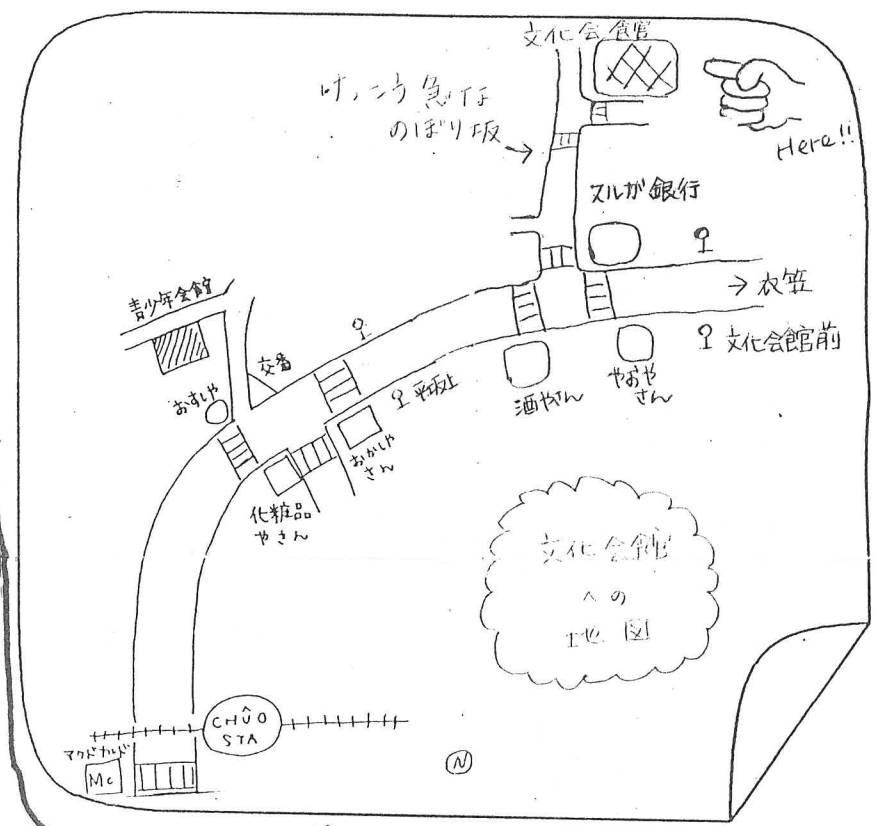 文化会館
けっこう急な
のぼり坂
Here!!
スルガ銀行
→衣笠
文化会館前
青少年会館
交番
おすしや
平坂上
酒やさん
やおや
さん
おかしや
さん
化粧品
やさん
文化会館
への
地図
CHÛO
STA
マクドナルド
Mc
N